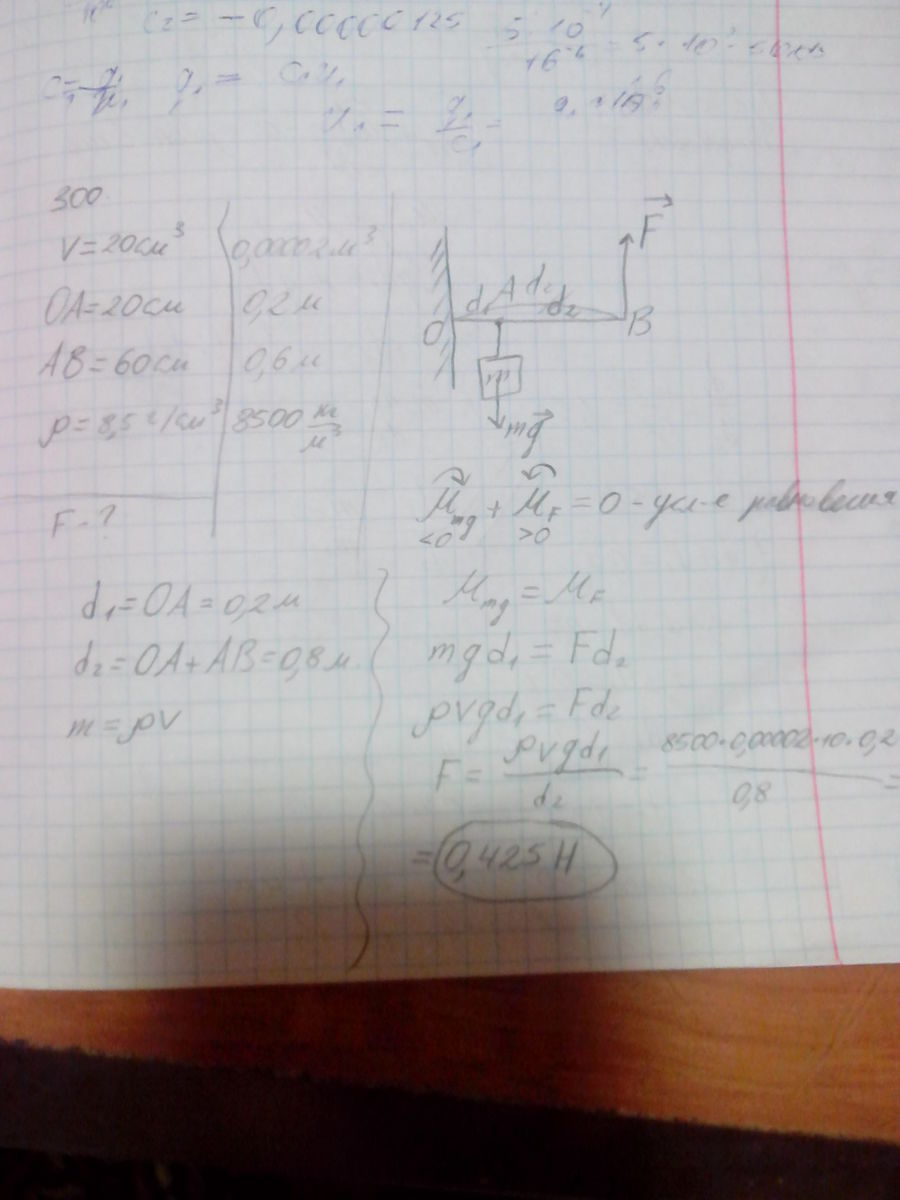 C₂ = -0,00000125
q₁ =
300.
V=20см³ 0,00002м³
OA=20см 0,2м
AB=60см 0,6м
ρ=8,5г/см³ 8500 кг/м³
F-?
F⃗
A d₂
d₁ d₂
O B
m
mg⃗
M_mg + M_F = 0 - усл-е равновесия
<0 >0
d₁=OA=0,2м
d₂=OA+AB=0,8м
m=ρV
M_mg = M_F
mgd₁ = Fd₂
ρVgd₁ = Fd₂
F = ρVgd₁/d₂ = 8500·0,00002·10·0,2/0,8 =
= 0,425 Н